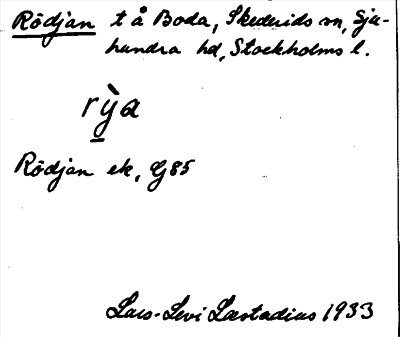 Rödjan t å Boda, Skeduids sn, Sju-
hundra hd, Stockholms l.
rỳa
Rödjan ek, G85
Lars-Levi Læstadius 1933